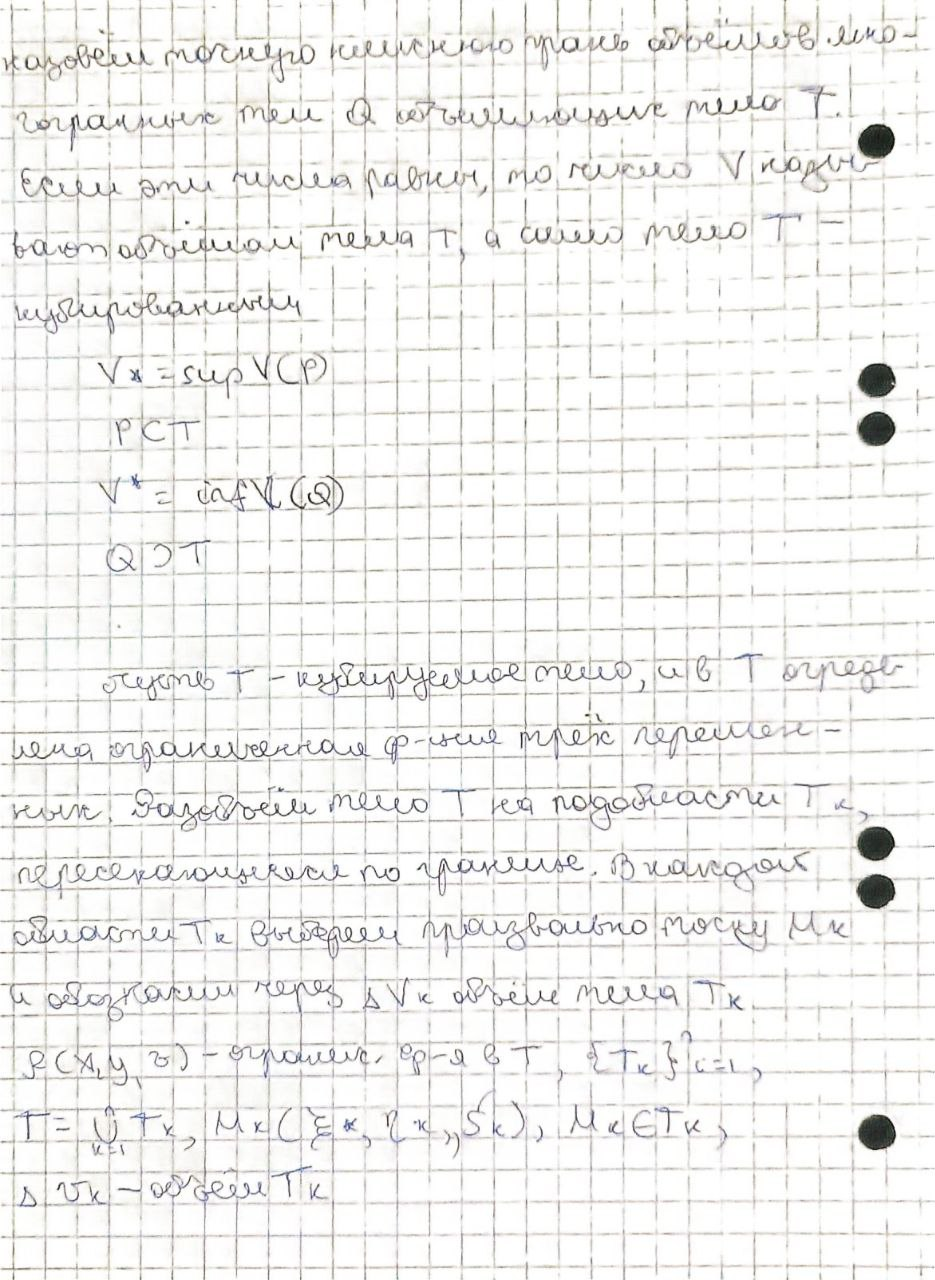 назовём точную нижнюю грань объёмов мно-
гогранных тел Q объемлющих тело T.
Если эти числа равны, то число V назы-
вают объёмом тела T, а само тело T –
кубированным
V* = sup V(P)
P ⊂ T
V* = inf V(Q)
Q ⊃ T
пусть T – кубируемое тело, и в T опреде-
лена ограниченная ф-ция трёх перемен-
ных. Разобьём тело T на подобласти Tк,
пересекающиеся по границе. В каждой
области Tк выберем произвольно точку Mк
и обозначим через ΔVк объём тела Tк
f(x, y, z) – огранич. ф-я в T, {Tк}ⁿi=1,
T = ⋃ⁿк=1 Tк, Mк(ξк, ηк, ζк), Mк ∈ Tк,
Δvк – объём Tк